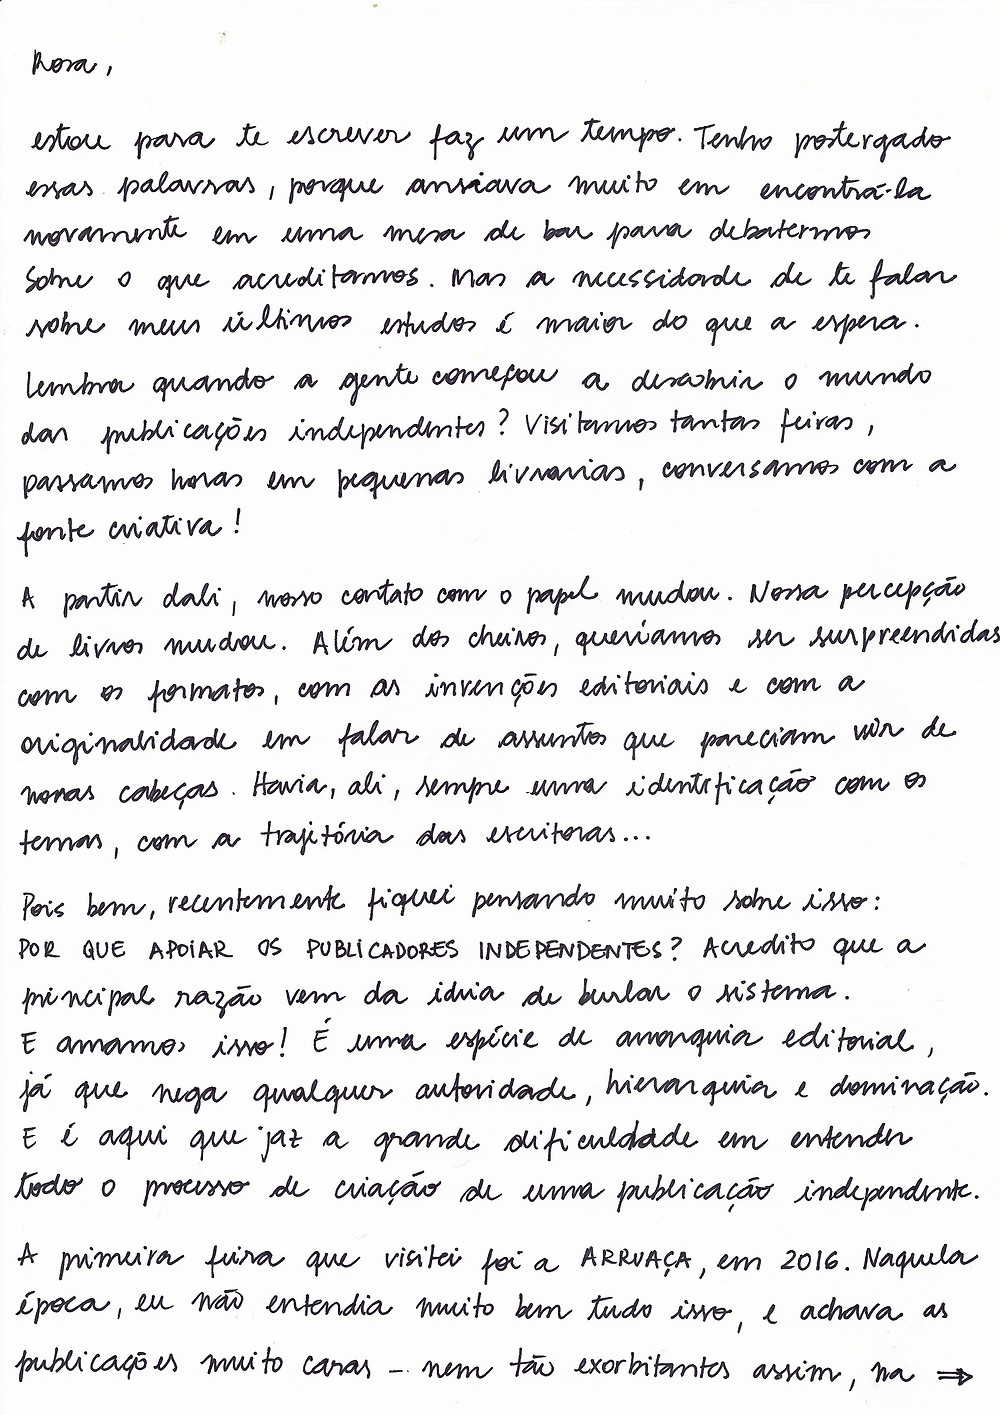 Rosa,
estou para te escrever faz um tempo. Tenho postergado
essas palavras, porque ansiava muito em encontrá-la
novamente em uma mesa de bar para debatermos
sobre o que acreditamos. Mas a necessidade de te falar
sobre meus últimos estudos é maior do que a espera.
Lembra quando a gente começou a descobrir o mundo
das publicações independentes? Visitamos tantas feiras,
passamos horas em pequenas livrarias, conversamos com a
fonte criativa!
A partir dali, nosso contato com o papel mudou. Nossa percepção
de livros mudou. Além dos cheiros, queríamos ser surpreendidas
com os formatos, com as invenções editoriais e com a
originalidade em falar de assuntos que pareciam vir de
nossas cabeças. Havia, ali, sempre uma identificação com os
temas, com a trajetória das escritoras...
Pois bem, recentemente fiquei pensando muito sobre isso:
POR QUE APOIAR OS PUBLICADORES INDEPENDENTES? Acredito que a
principal razão vem da ideia de burlar o sistema.
E amamos isso! É uma espécie de anarquia editorial,
já que nega qualquer autoridade, hierarquia e dominação.
E é aqui que jaz a grande dificuldade em entender
todo o processo de criação de uma publicação independente.
A primeira feira que visitei foi a ARRUAÇA, em 2016. Naquela
época, eu não entendia muito bem tudo isso, e achava as
publicações muito caras – nem tão exorbitantes assim, na ⇒